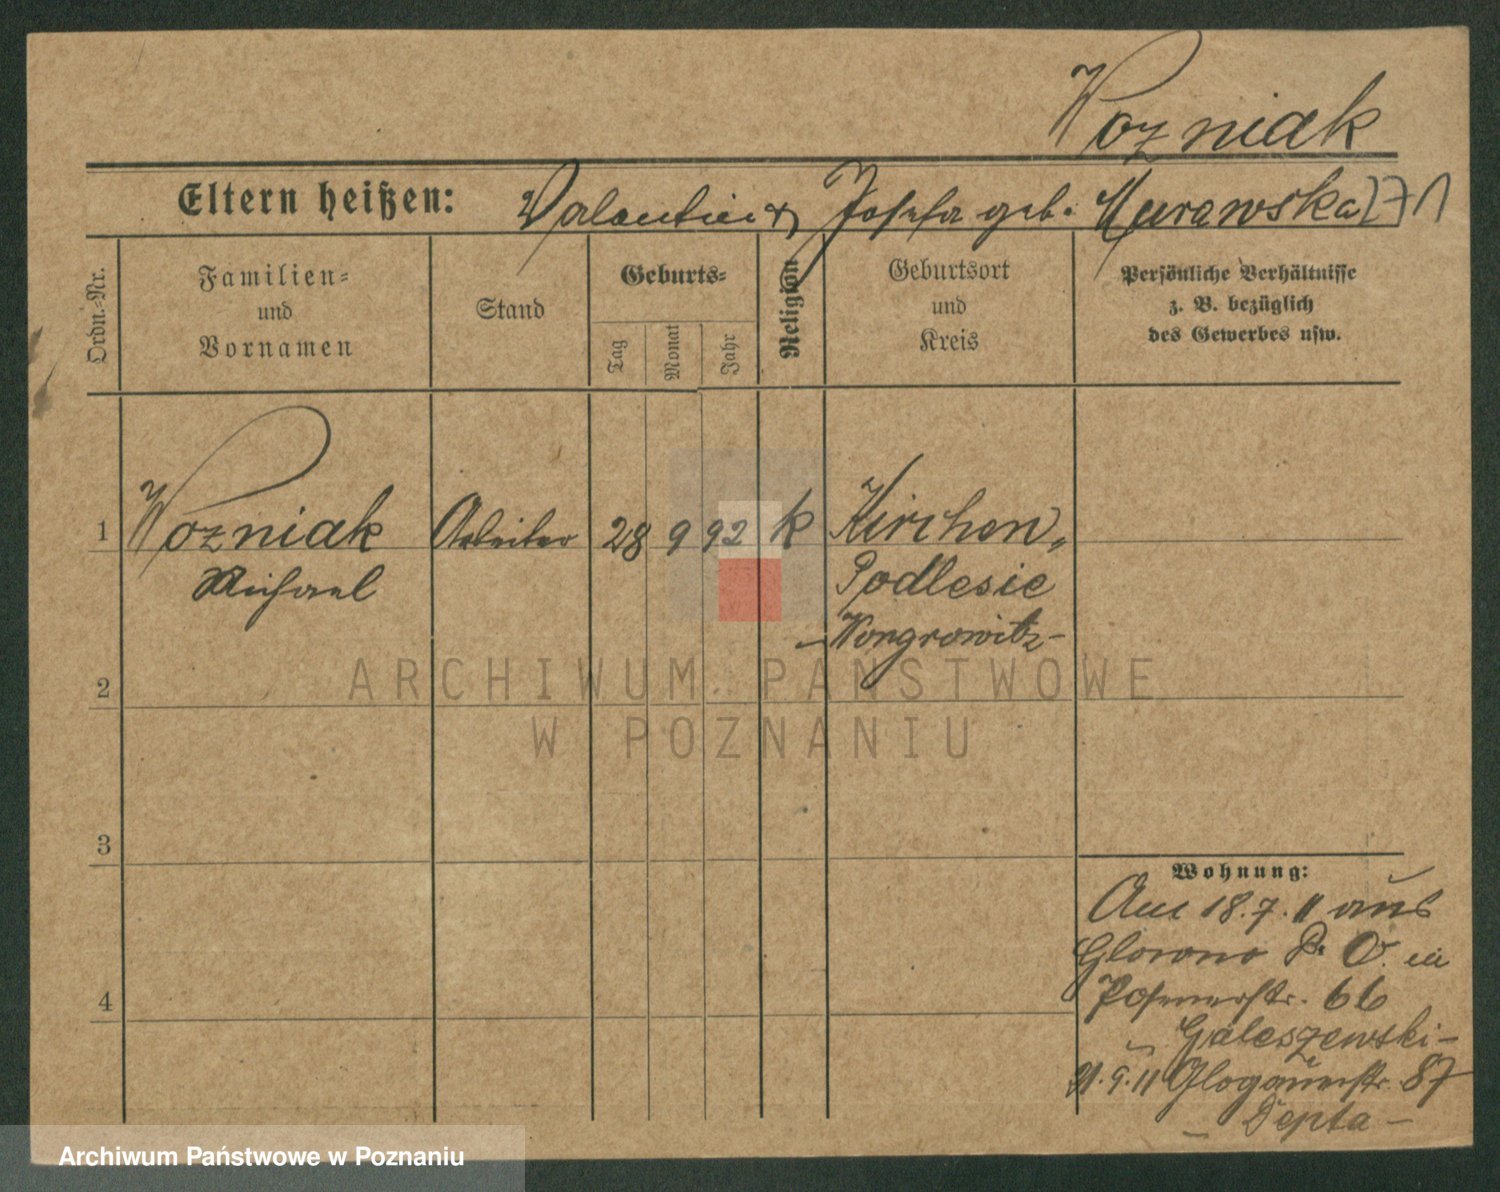 Wozniak
Eltern heißen: Valentin & Josefa geb. Murawska
Ordn.-Nr.
Familien-
und
Vornamen
Stand
Geburts-
Tag
Monat
Jahr
Religion
Geburtsort
und
Kreis
Persönliche Verhältnisse
z. B. bezüglich
des Gewerbes usw.
1 Wozniak Arbeiter 28 9 92 k Kirchen„
Michael Podlesie
– Wongrowitz –
2
3
4
Wohnung:
Am 18.7.11 aus
Glowno P. O. in
Posenerstr. 66
– Galeszewski –
21.9.11 Glogauerstr. 87
– Depta –
ARCHIWUM PAŃSTWOWE
W POZNANIU
Archiwum Państwowe w Poznaniu